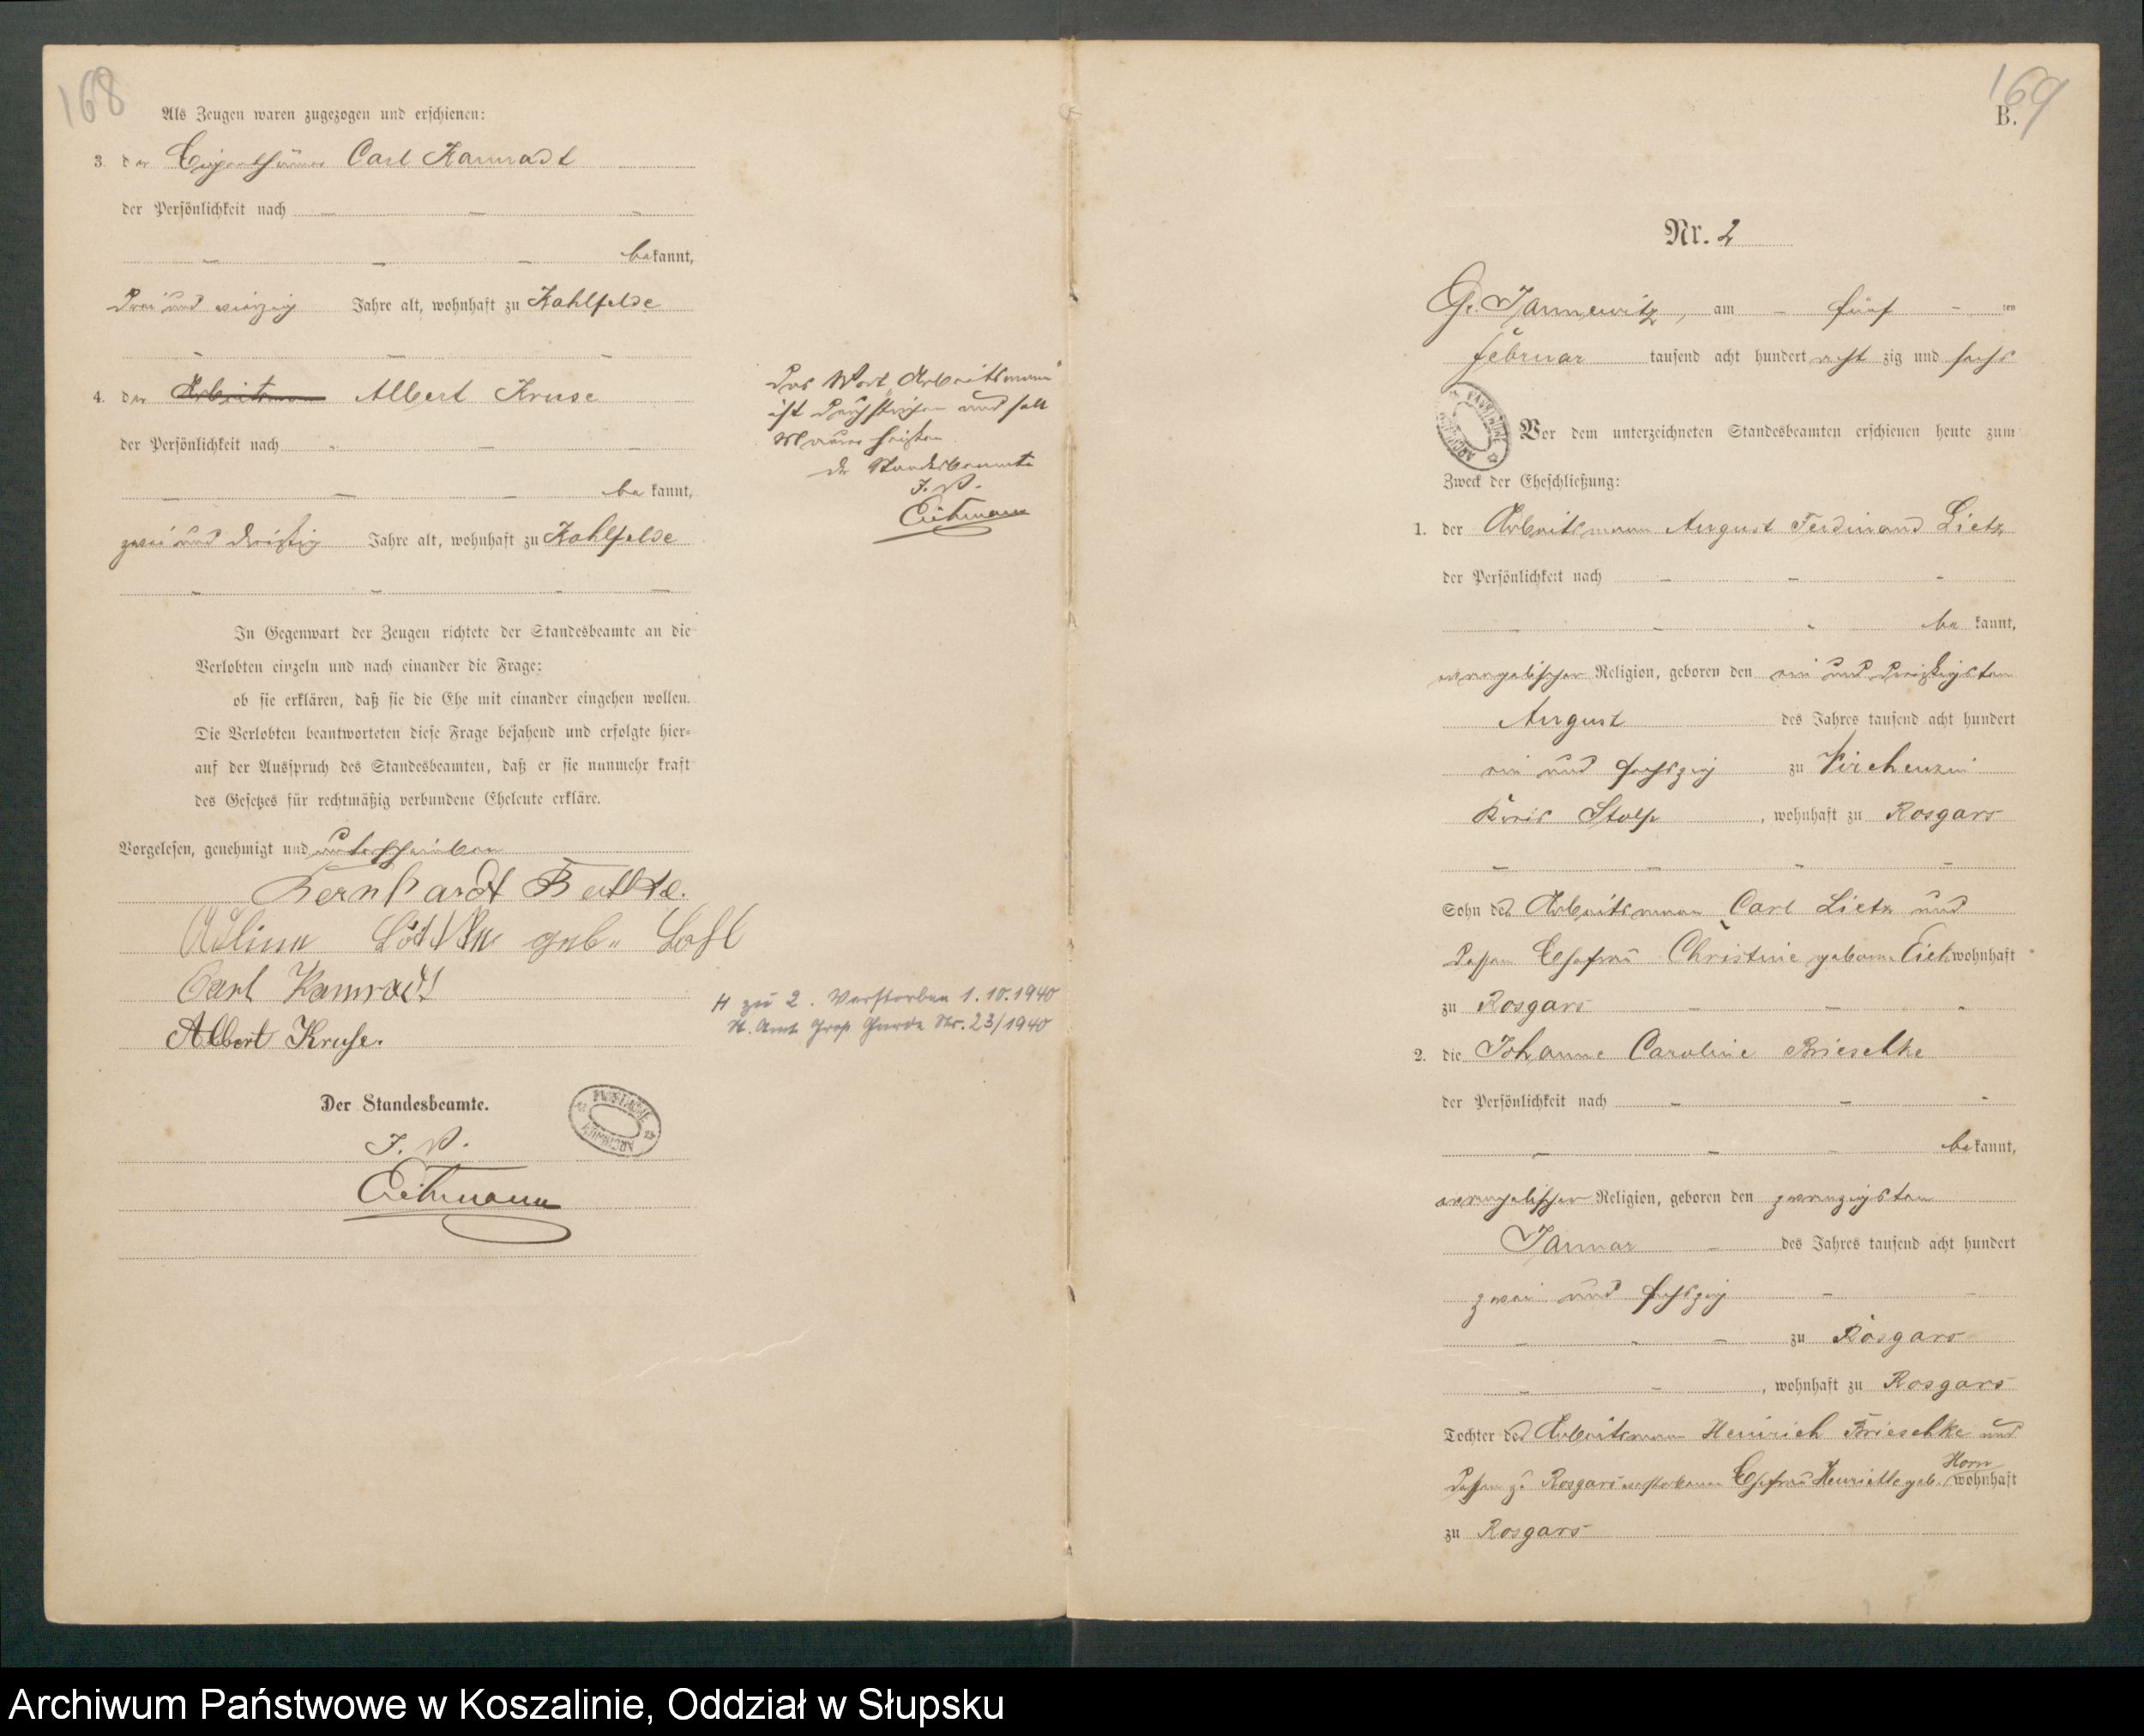 168
Als Zeugen waren zugezogen und erschienen:
3. der Eigenthümer Carl Kamradt
der Persönlichkeit nach
bekannt,
drei und vierzig Jahre alt, wohnhaft zu Kahlfelde
4. der Arbeitsmann Albert Kruse
der Persönlichkeit nach
bekannt,
zwei und dreißig Jahre alt, wohnhaft zu Kahlfelde
In Gegenwart der Zeugen richtete der Standesbeamte an die
Verlobten einzeln und nach einander die Frage:
ob sie erklären, daß sie die Ehe mit einander eingehen wollen.
Die Verlobten beantworteten diese Frage bejahend und erfolgte hier-
auf der Ausspruch des Standesbeamten, daß er sie nunmehr kraft
des Gesetzes für rechtmäßig verbundene Eheleute erkläre.
Vorgelesen, genehmigt und unterschrieben
Bernhardt
geb.
Carl Kamradt
Albert Kruse.
Der Standesbeamte.
I. V.
Das Wort „Arbeitsmann"
ist durchstrichen und soll
Maurer heißen
Der Standesbeamte
I. V.
H zu 2. Verstorben 1.10.1940
St. Amt Groß Garde Nr. 23/1940
ARCHIWUM PAŃSTWOWE
169
B.
Nr. 2
Gr. Jannewitz, am fünf ten
Februar tausend acht hundert acht zig und sechs
ARCHIWUM PAŃSTWOWE
Vor dem unterzeichneten Standesbeamten erschienen heute zum
Zweck der Eheschließung:
1. der Arbeitsmann August Ferdinand Lietz
der Persönlichkeit nach
bekannt,
evangelischer Religion, geboren den ein und dreißigsten
August des Jahres tausend acht hundert
ein und sechszig zu
Kreis Stolp, wohnhaft zu Rosgars
Sohn des Arbeitsmann Carl Lietz und
dessen Ehefrau Christine geborne wohnhaft
zu Rosgars
2. die Johanne Caroline Brieschke
der Persönlichkeit nach
bekannt,
evangelischer Religion, geboren den zwanzigsten
Januar des Jahres tausend acht hundert
zwei und sechszig
zu Rosgars
, wohnhaft zu Rosgars
Tochter des Arbeitsmann Heinrich Brieschke und
dessen zu Rosgars verstorbenen Ehefrau Henriette geb. Horn wohnhaft
zu Rosgars
Archiwum Państwowe w Koszalinie, Oddział w Słupsku